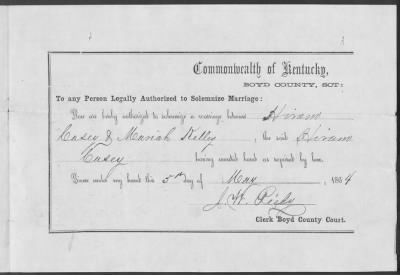 Commonwealth of Kentucky,
BOYD COUNTY, SCT:
To any Person Legally Authorized to Solemnize Marriage:
You are hereby authorized to solemnize a marriage between Hiram
Casey & Mariah Kelley, the said Hiram
Casey having executed bond as required by law.
Given under my hand this 5th day of May, 1864
J. W.
Clerk Boyd County Court.